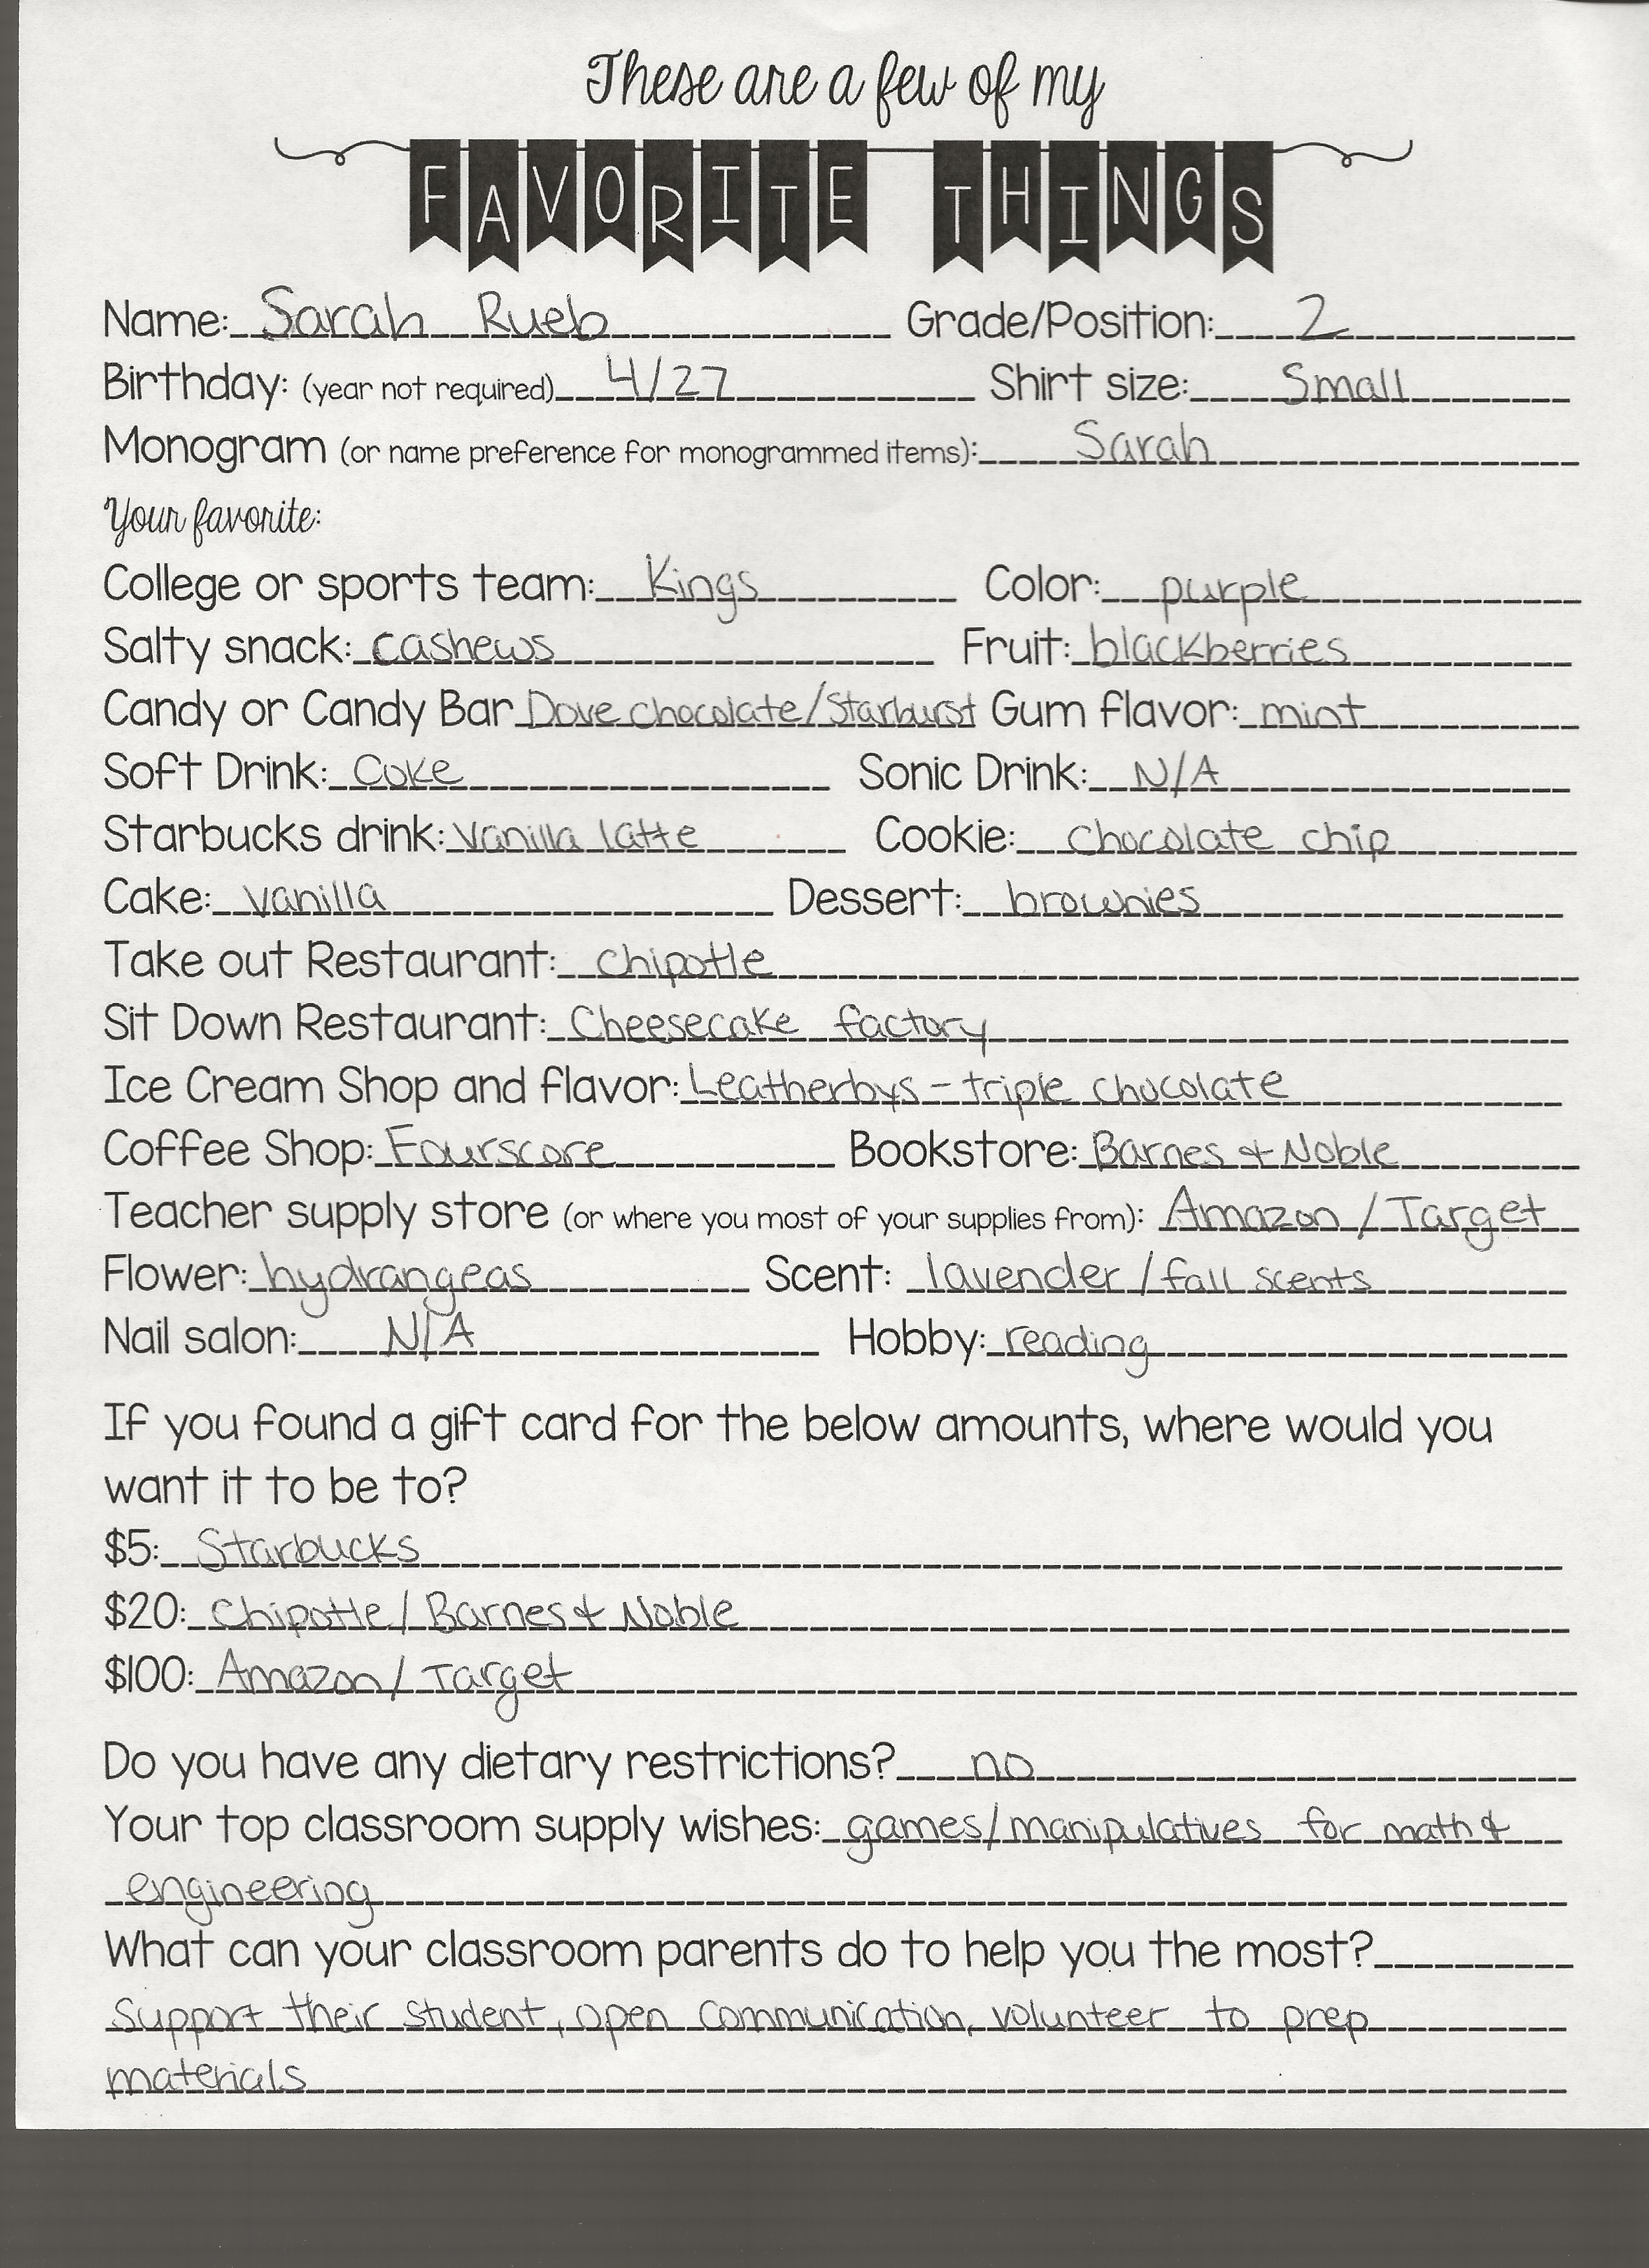 These are a few of my
FAVORITE THINGS
Name: Sarah Rueb Grade/Position: 2
Birthday: (year not required) 4/27 Shirt size: Small
Monogram (or name preference for monogrammed items): Sarah
Your favorite:
College or sports team: Kings Color: purple
Salty snack: cashews Fruit: blackberries
Candy or Candy Bar Dove chocolate/Starburst Gum flavor: mint
Soft Drink: Coke Sonic Drink: N/A
Starbucks drink: Vanilla latte Cookie: Chocolate chip
Cake: vanilla Dessert: brownies
Take out Restaurant: Chipotle
Sit Down Restaurant: Cheesecake factory
Ice Cream Shop and flavor: Leatherbys - triple chocolate
Coffee Shop: Fourscore Bookstore: Barnes & Noble
Teacher supply store (or where you most of your supplies from): Amazon / Target
Flower: hydrangeas Scent: lavender / fall scents
Nail salon: N/A Hobby: reading
If you found a gift card for the below amounts, where would you
want it to be to?
$5: Starbucks
$20: Chipotle / Barnes & Noble
$100: Amazon / Target
Do you have any dietary restrictions? no
Your top classroom supply wishes: games/manipulatives for math &
engineering
What can your classroom parents do to help you the most?
Support their student, open communication, volunteer to prep
materials